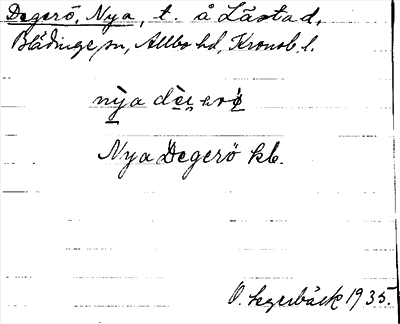 Degerö, Nya, t. å Lästad,
Blädinge sn, Allbo hd, Kronob. l.
Nya Degerö kb.
O. Segerbäck 1935.